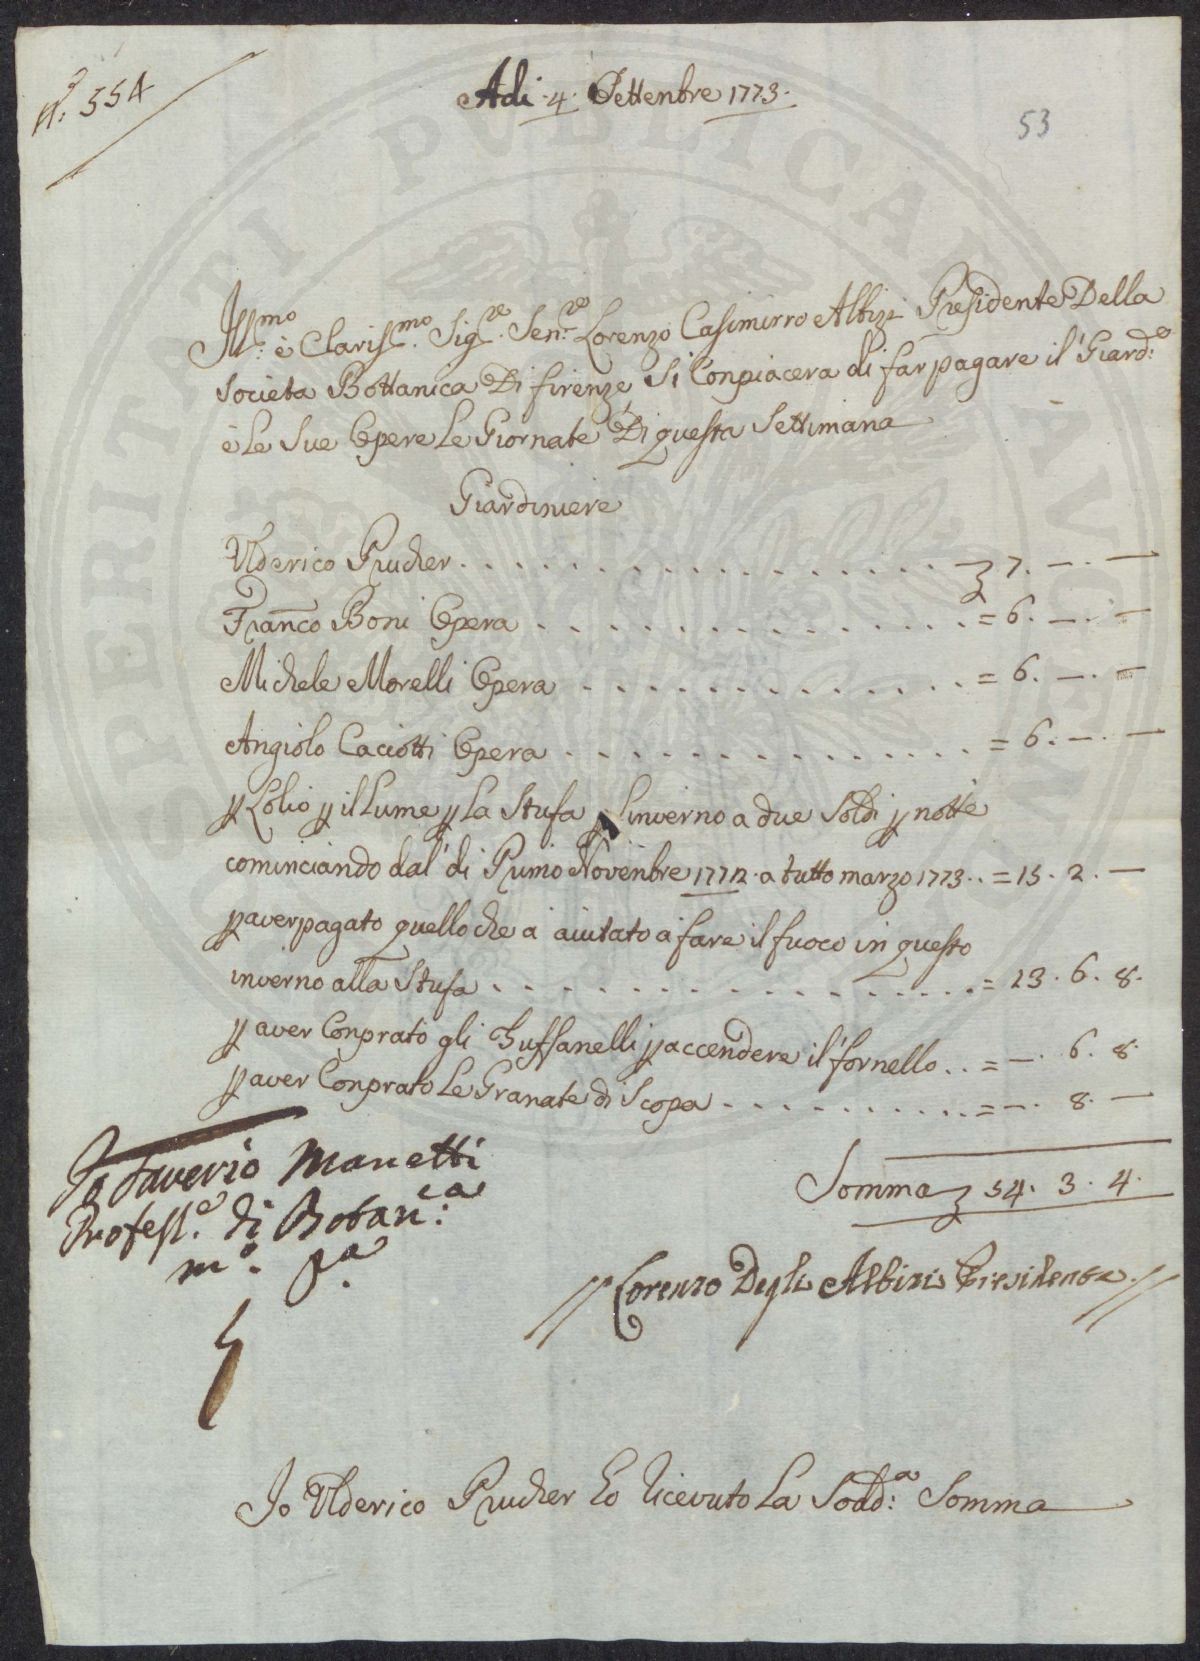 N.° 554
Adi 4. Settenbre 1773.
53
Ill.mo è Clariss.mo Sig.re Sen.re Lorenzo Casimirro Albizi Presidente Della
Societa Bottanica Di firenze Si Conpiacera di far pagare il Giard.e
è le Sue Opere Le Giornate Di questa Settimana
Giardiniere
Ulderico Prucher . . . . . . . . . . . . . . . . . 7. —. —
Franco Boni Opera . . . . . . . . . . . . . . = 6. —. —
Michele Morelli Opera . . . . . . . . . . . . = 6. —. —
Angiolo Caciotti Opera . . . . . . . . . . . . . = 6. —. —
p Lolio p il Lume p La Stufa p linverno a due Soldi p notte
cominciando dal di Primo Novenbre 1772 a tutto marzo 1773 . . = 15. 2. —
p aver pagato quello che a aiutato a fare il fuoco in questo
inverno alla Stufa . . . . . . . . . . . . . . . . . = 13. 6. 8.
p aver Conprato gli Zuffanelli p accendere il fornello . . = —. 6. 8.
p aver Conprato Le Granate di Scopa . . . . . . . . . . = —. 8. —
Somma 54. 3. 4.
Io Saverio Manetti
Profess.e di Botan.ca
m.° p.a
// Lorenzo Degli Albizi Presidente //
Io Ulderico Prucher ho Ricevuto La Sodd.a Somma
PERITATI PVBLICAE AVGENDAE